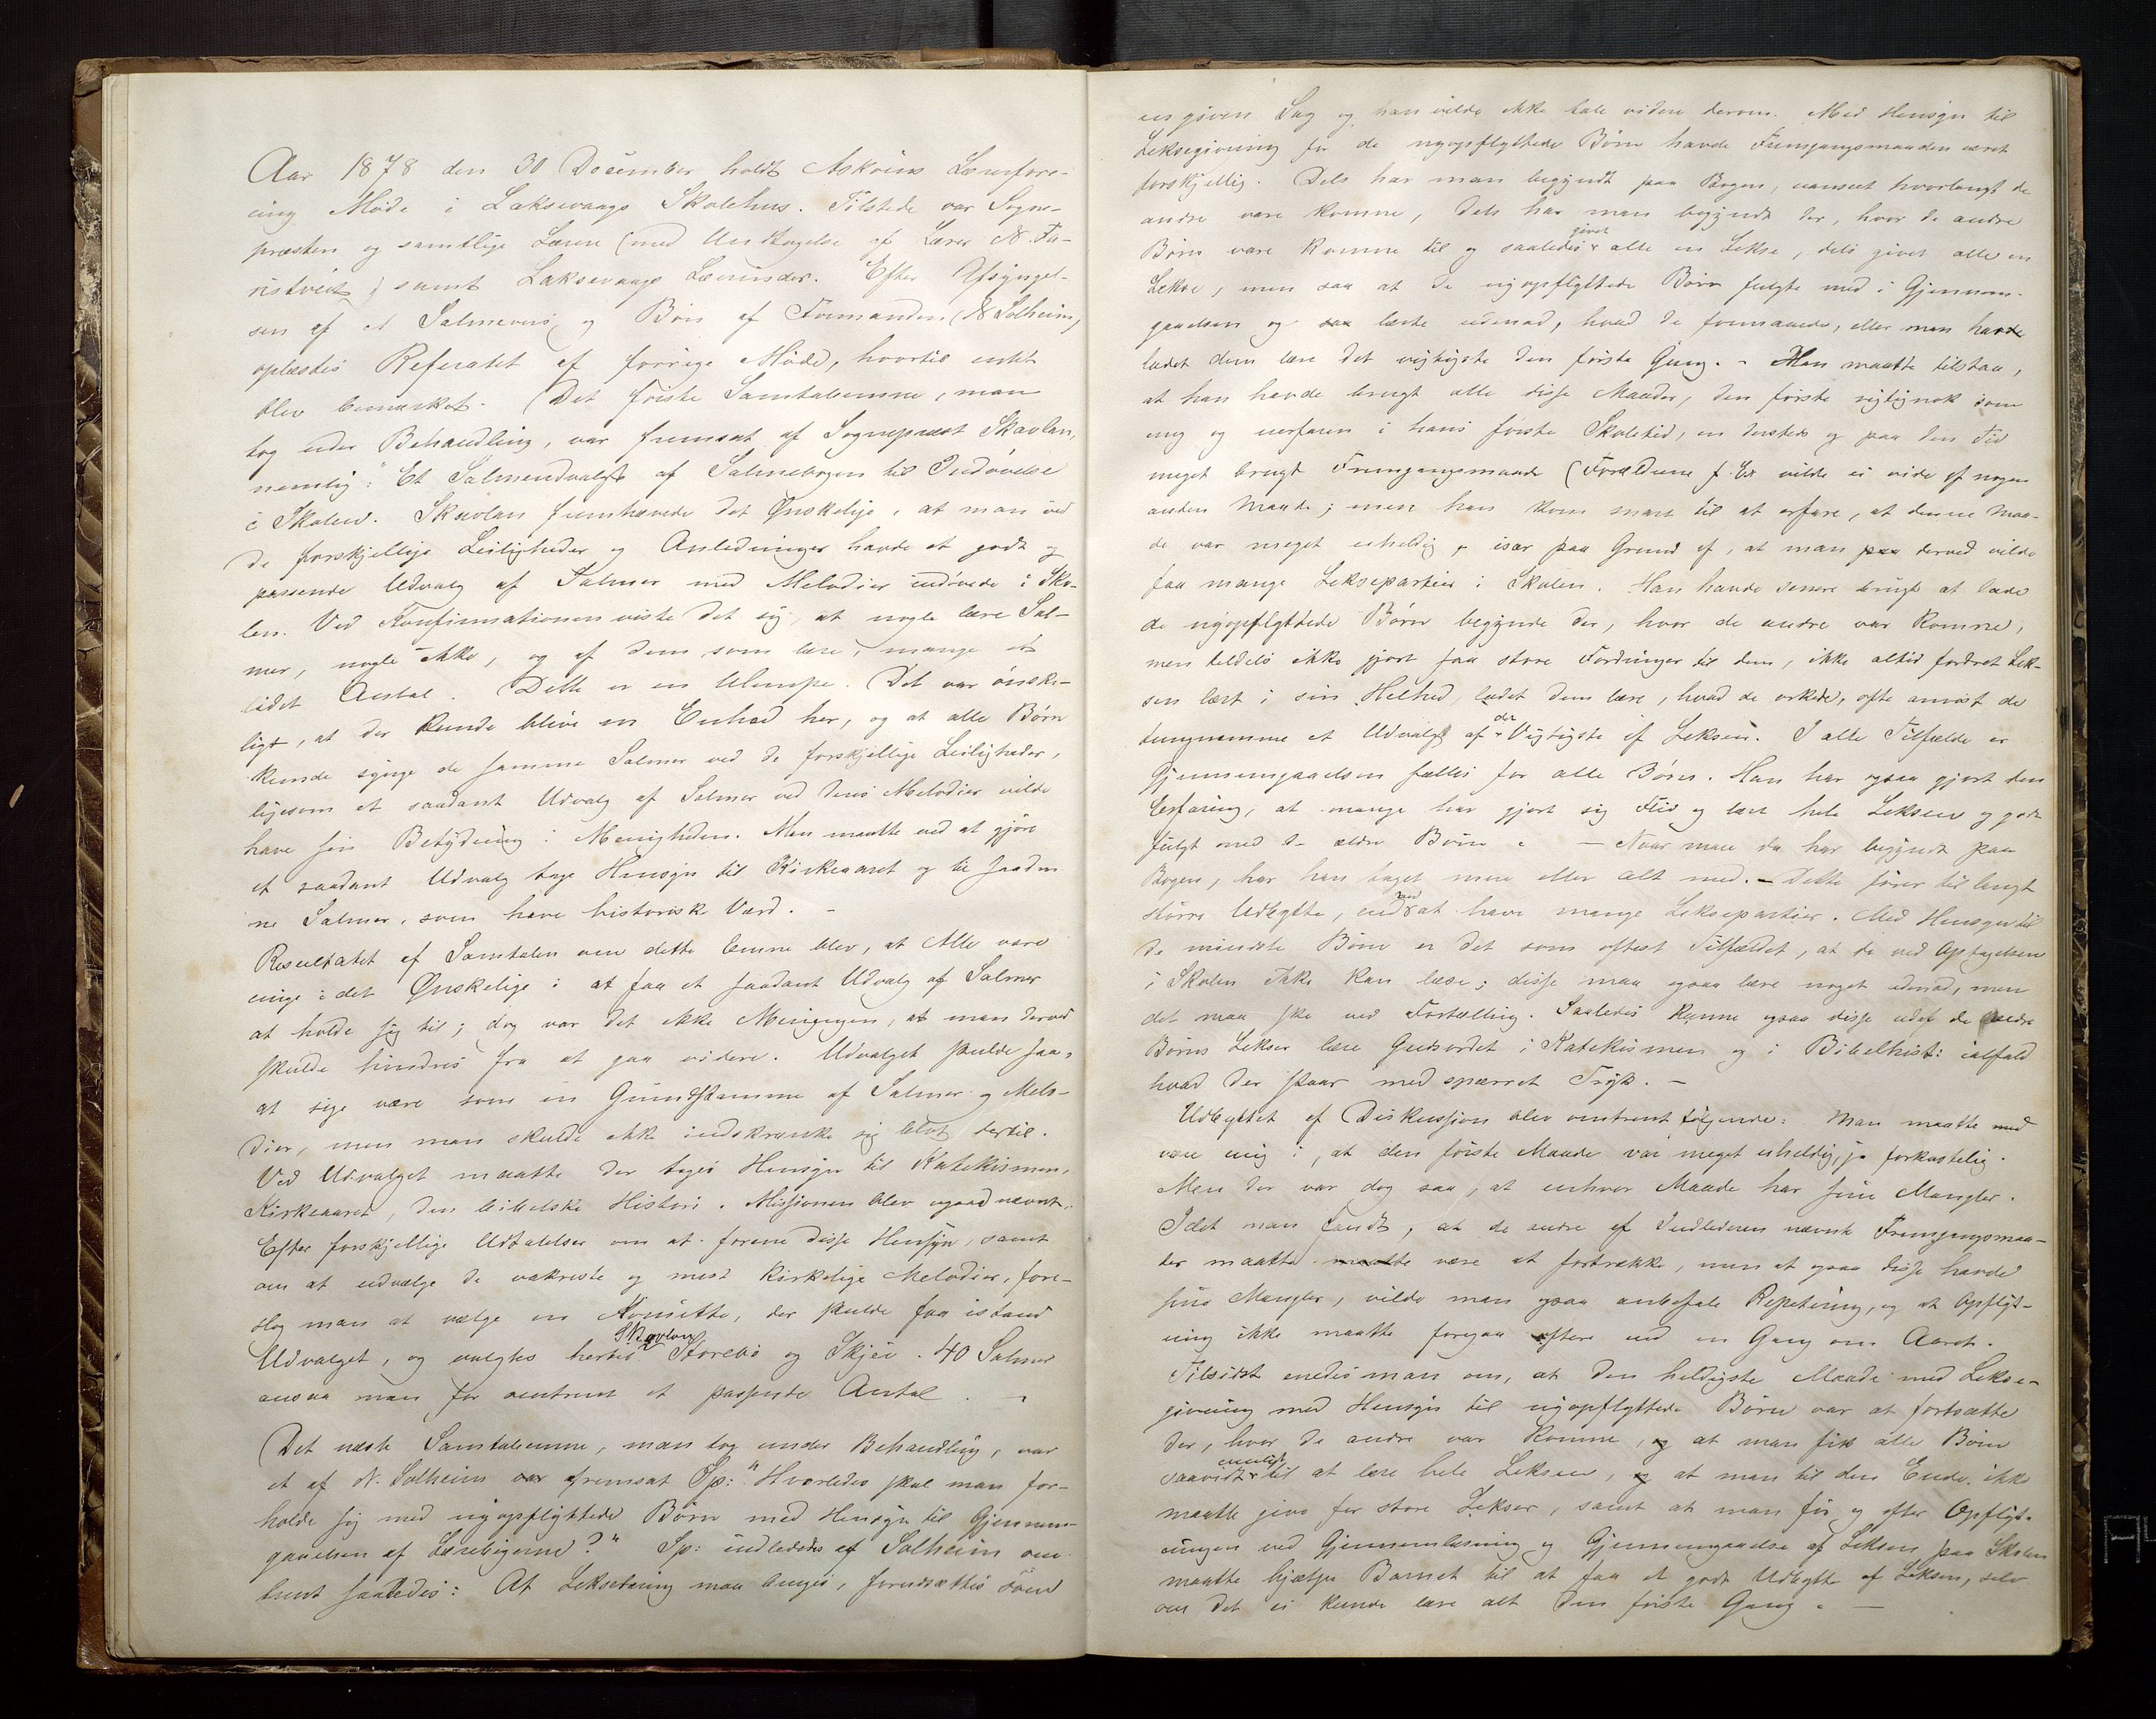 Aar 1878 den 30 December holdt Askøens Lærerfore-
ning Møde i Laksevaags Skolehus. Tilstede var Sogne-
præsten og samtlige Lærere (med Undtagelse af Lærer N. Fa-
ristveit) samt Laksevaags Lærerinder. Efter Afsyngel-
sen af et Salmevers og Bøn af Formanden (N Solheim)
oplæstes Referatet af forrige Møde, hvortil intet
blev bemærket. Det første Samtaleemne, man
tog under Behandling, var fremsat af Sognepræst Skavlan,
nemlig: "Et Salmeudvalgt af Salmebogen til Indøvelse
i Skolen. Skavlan fremhævede det Ønskelige, at man ved
de forskjellige Leiligheder og Anledninger havde et godt og
passende Udvalg af Salmer med Melodier indøvede i Sko-
len. Ved Konfirmationen viste det sig, at nogle lære Sal-
mer, nogle ikke, og af dem som lære, mange et
lidet Antal. Dette er en Ulempe. Det var ønske-
ligt, at der kunde blive en Enhed her, og at alle Børn
kunde synge de samme Salmer ved de forskjellige Leiligheder,
ligesom et saadant Udvalg af Salmer ved deres Melodier vilde
have sin Betydning i Menigheden. Man maatte ved at gjøre
et saadant Udvalg tage Hensyn til Kirkeaaret og til saadan
ne Salmer, som have historisk Værd. -
Resultatet af Samtalen om dette Emne blev, at Alle vare
enige i det Ønskelige i at faa et saadant Udvalg af Salmer
at holde sig til; dog var det ikke Meningen, at man derved
skulde hindres fra at gaa videre. Udvalget skulde saa
at sige være som en Grundstamme af Salmer og Melo-
dier, men man skulde ikke indskrænke sig blot dertil.
Ved Udvalget maatte der tages Hensyn til Katekismen,
Kirkeaaret, den bibelske Historie. Missionen blev ogsaa nævnt.
Efter forskjellige Udtalelser om at forene disse Hensyn, samt
om at udvælge de vakreste og mest kirkelige Melodier, fore-
slog man at vælge en Komitte, der skulde faa istand
Udvalget, og valgtes hertil Skavlan Storebø og Skjei. 40 Salmer
ansaa man for omtrent et passende Antal. -
Det næste Samtaleemne, man tog under Behandling, var
et af N. Solheim var fremsat Sp: "Hvorledes skal man for-
holde sig med nyopflyttede Børn med Hensyn til Gjennem-
gaaelsen af Lærebøgerne?" Sp: indlededes af Solheim om-
trent saaledes: At Lekselæsning maa bruges, forudsættes som
en given Sag og han vilde ikke tale videre derom. Med Hensyn til
Leksegivning for de nyopflyttede Børn havde Fremgangsmaaden været
forskjellig. Dels har man begyndt paa Bogen, uanseet hvorlangt de
andre vare komne, dels har man begyndt der, hvor de andre
Børn vare komne til og saaledes givet alle en Lekse, dels givet alle en
Lekse, men saa at de nyopflyttede Børn fulgte med i Gjennem-
gaaelsen og saa lærte udenad, hvad de formaaede, eller man havde
ladet dem lære det vigtigste den første Gang. - Han maatte tilstaa,
at han havde brugt alle disse Maader, den første rigtignok som
ung og uerfaren i hans første Skoletid, en dersteds og paa den Tid
meget brugt Fremgangsmaade (Forældrene f. Ex vilde ei vide af nogen
anden Maade; men han kom snart til at erfare, at denne Maa-
de var meget uheldig, især paa Grund af, at man paa derved vilde
faa mange Leksepartier i Skolen. Han havde senere brugt at lade
de nyopflyttede Børn begynde der, hvor de andre var komne,
men tildels ikke gjort faa store Fordringer til dem, ikke altid fordret Lek-
sen lært i sin Helhed, ladet dem lære, hvad de orkede, ofte anvist de
tungnemme et Udvalg af det Vigtigste af Leksen. I alle Tilfælde er
Gjennemgaaelsen fælles for alle Børn. Han har ogsaa gjort den
Erfaring, at mange har gjort sig Flid og lært hele Leksen og godt
fulgt med de ældre Børn. - Naar man da har begyndt paa
Bogen, har han taget mere eller alt med. - Dette fører til langt
større Udbytte, end ved at have mange Leksepartier. Med Hensyn til
de mindste Børn er det som oftest Tilfældet, at de ved Optagelsen
i Skolen ikke kan læse; disse maa ogsaa lære noget udenad, men
det maa ske ved Fortælling. Saaledes kunne ogsaa disse udaf de ældre
Børns Lekser lære Gudsordet i Katekismen og i Bibelhist: ialfald
hvad der staar med spærret Tryk. -
Udbyttet af Diskussionen blev omtrent følgende: Man maatte med
være enig i, at den første Maade var meget uheldig, ja forkastelig.
Men der var dog saa, at enhver Maade har sine Mangler.
Idet man fandt, at de andre af Indlederen nævnte Fremgangsmaa-
der maatte maatte være at foretrække, men at ogsaa disse havde
sine Mangler, vilde man ogsaa anbefale Repetering, og at Opflyt-
ning ikke maatte foregaa oftere end en Gang om Aaret.
Tilsidst enedes man om, at den heldigste Maade med Lekse-
givning med Hensyn til nyopflyttede Børn var at fortsætte
der, hvor de andre var komne, og at man fik alle Børn
saavidt muligt til at lære hele Leksen, og at man til den Ende ikke
maatte give for store Lekser, samt at man før og efter Opflyt-
ningen ved Gjennemlæsning og Gjennemgaaelse af Leksen paa Skolen
maatte hjælpe Barnet til at faa et godt Udbytte af Leksen, selv
om det ei kunde lære alt den første Gang. -